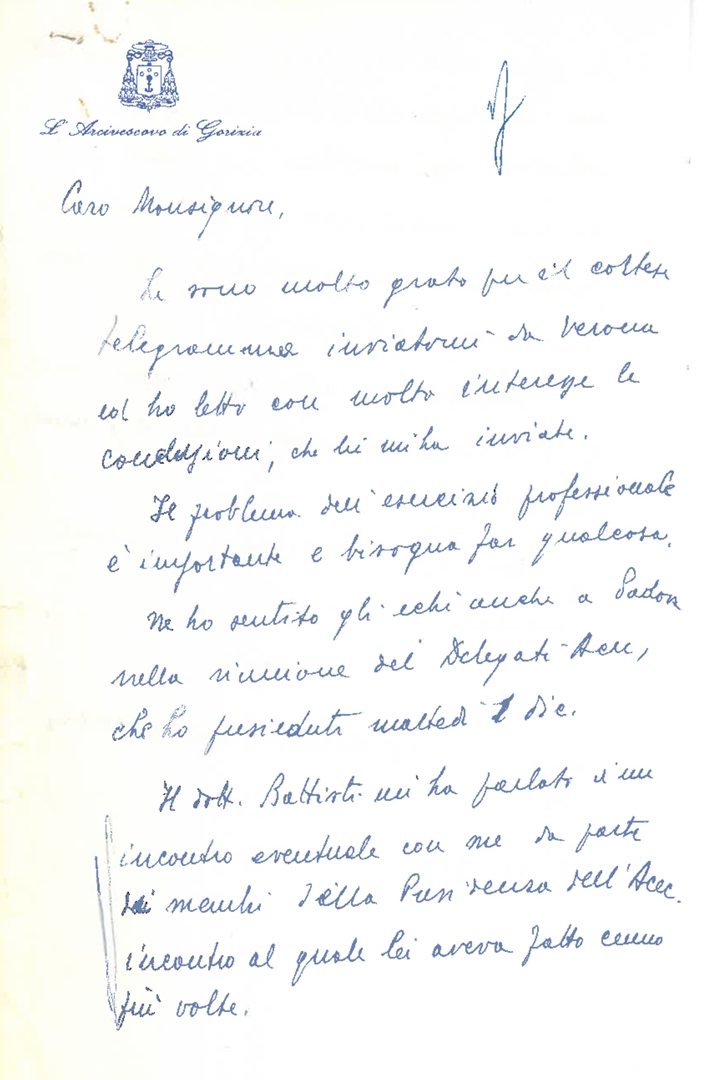 L'Arcivescovo di Gorizia
Caro Monsignore,
Le sono molto grato per il cortese
telegramma inviatomi da Verona
ed ho letto con molto interesse le
che lei mi ha inviate.
Il problema dell'esercizio professionale
è importante e bisogna far qualcosa.
Ne ho sentito gli echi anche a Padova
nella riunione dei Delegati Acec,
che ho presieduti martedì 1 dic.
Il dott. Battisti mi ha parlato d'un
incontro eventuale con me da parte
dei membri della Presidenza dell'Acec.
incontro al quale lei aveva fatto cenno
più volte.